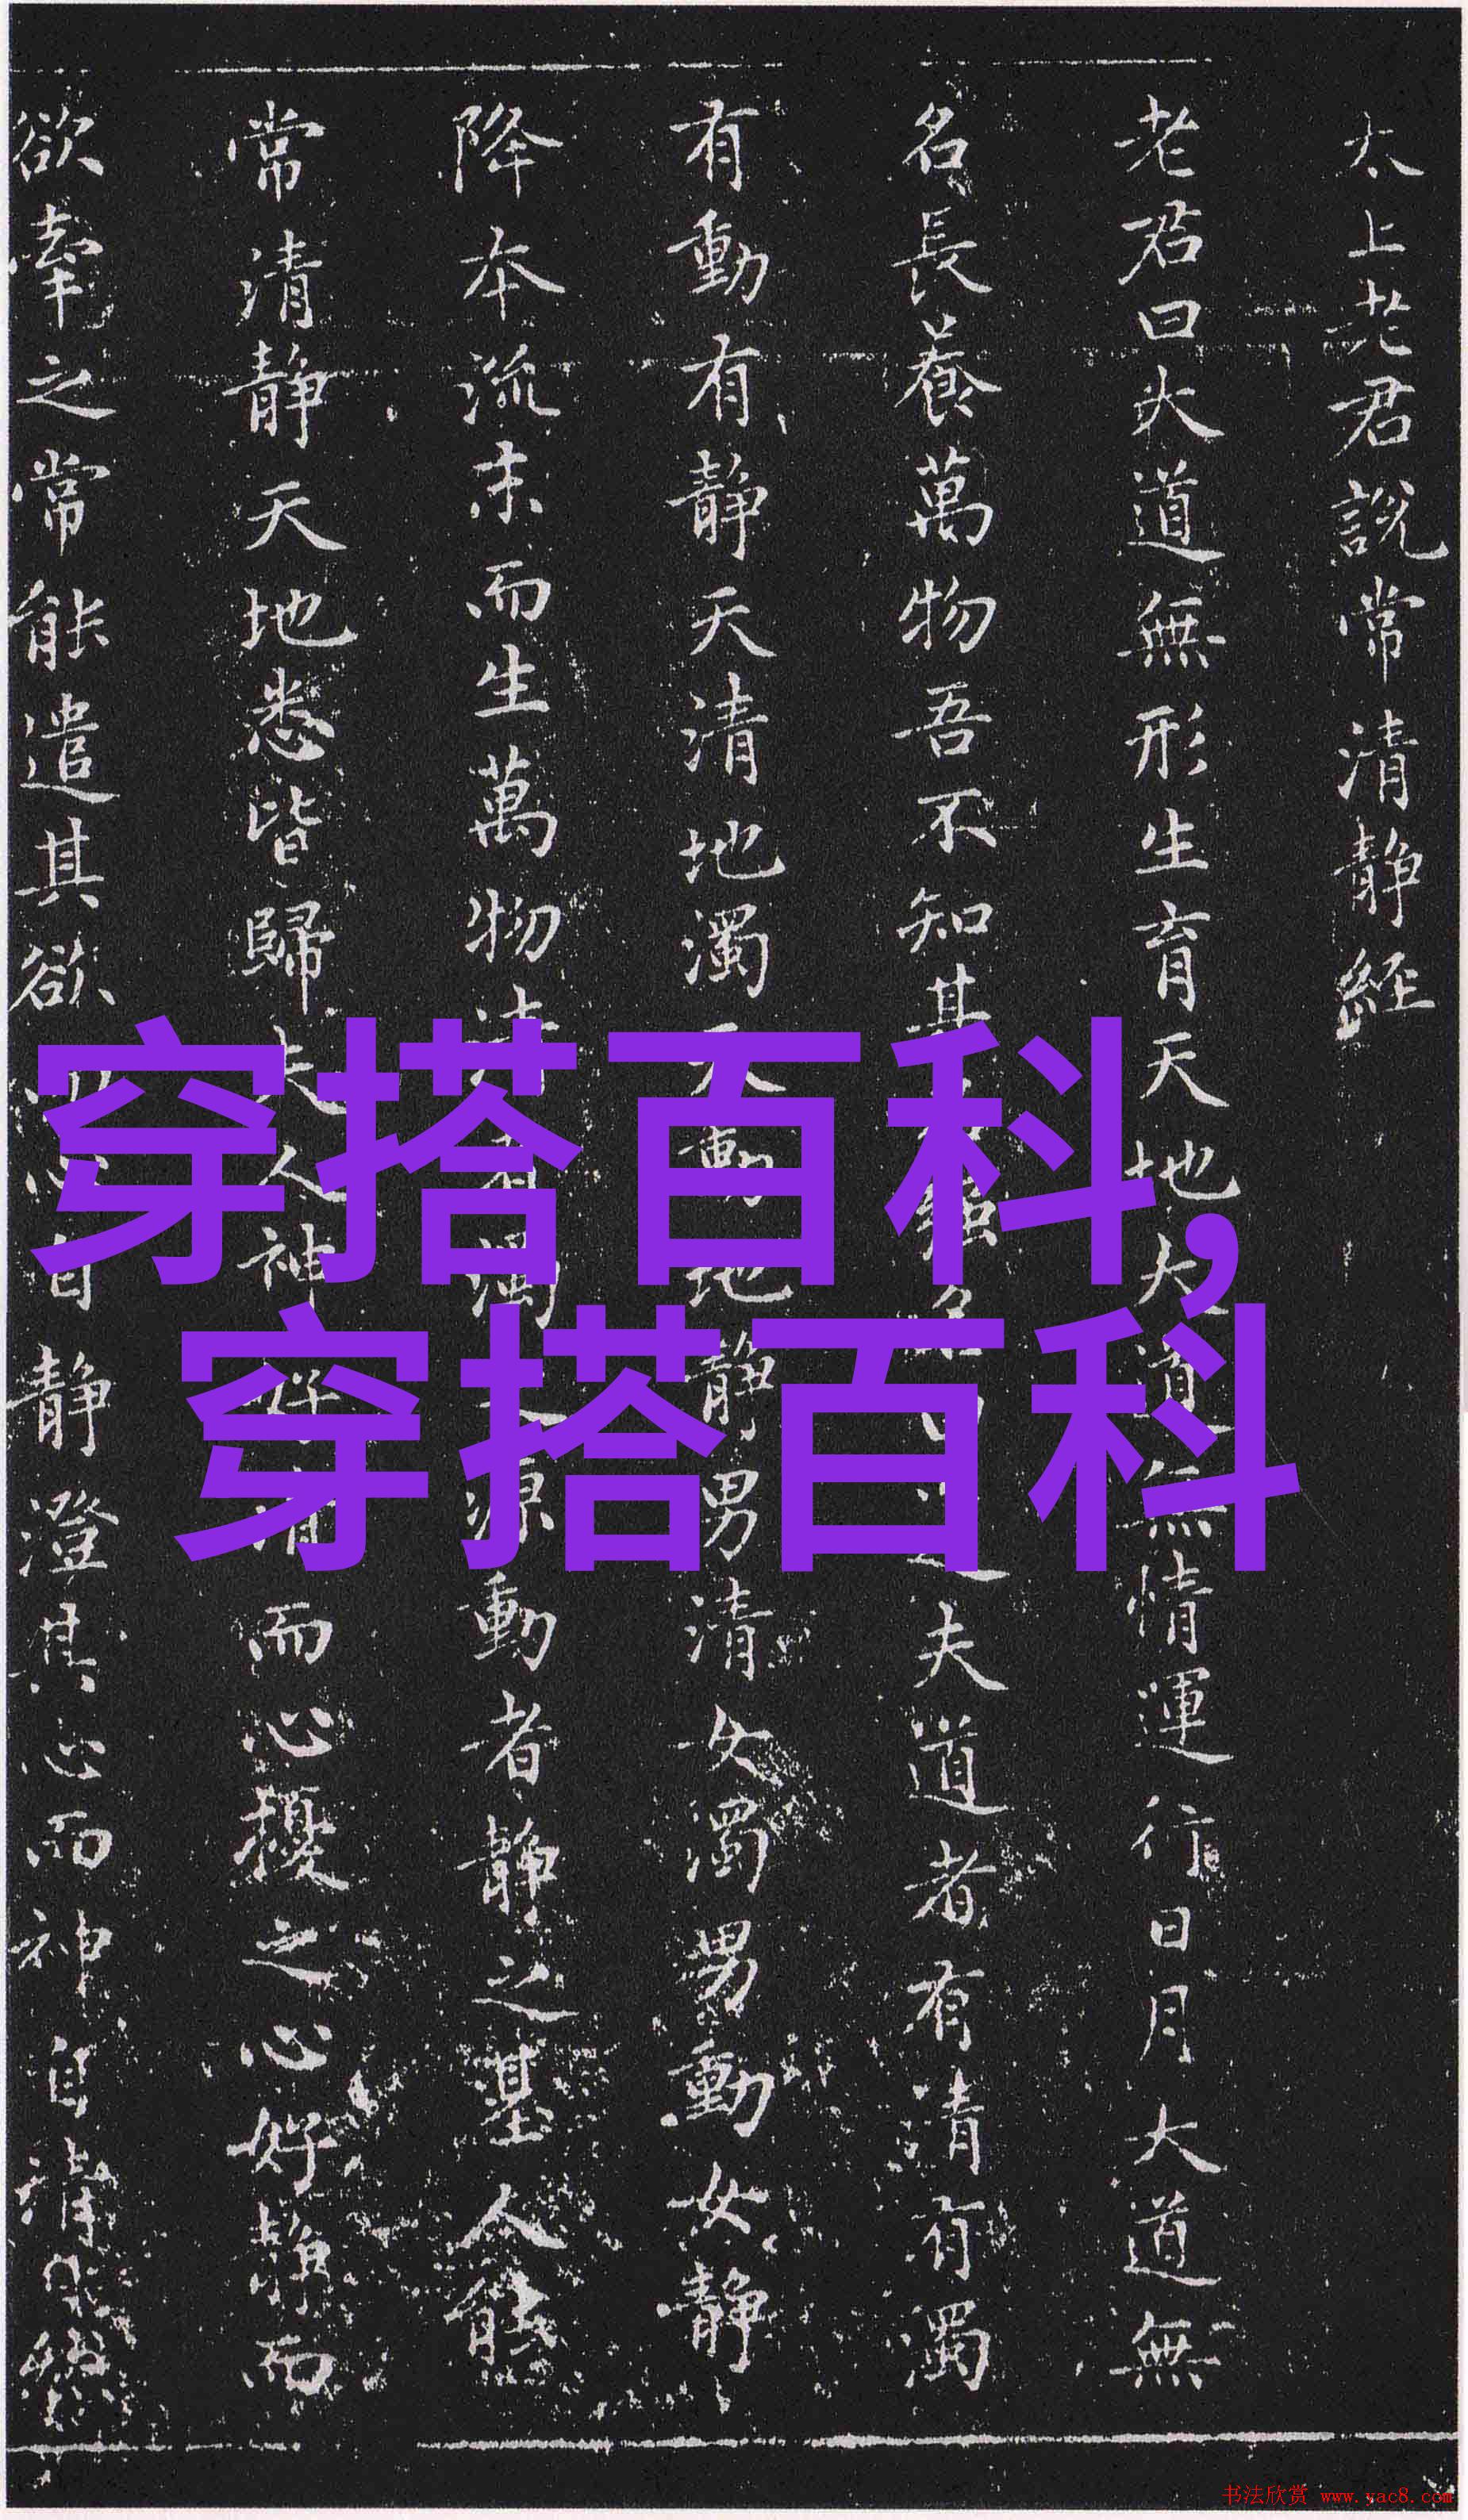 太上老君說常清静經
老君曰大道無形生育天地大道無情運行日月大道無
名長養萬物吾不知其名曰道夫道者有清有濁
有動有静天清地濁天動地静男清女濁男動女静
降本流末而生萬物清者濁之源動者静之基人能
常清静天地悉皆歸夫人神好清而心擾之心好静而
欲牽之常能遣其欲而心自静澄其心而神自清
穿搭百科,
穿搭百科
书法欣赏 www.yac8.com